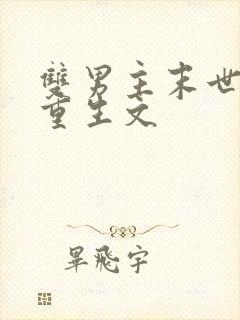 雙男主末世
重生文
畢飛宇